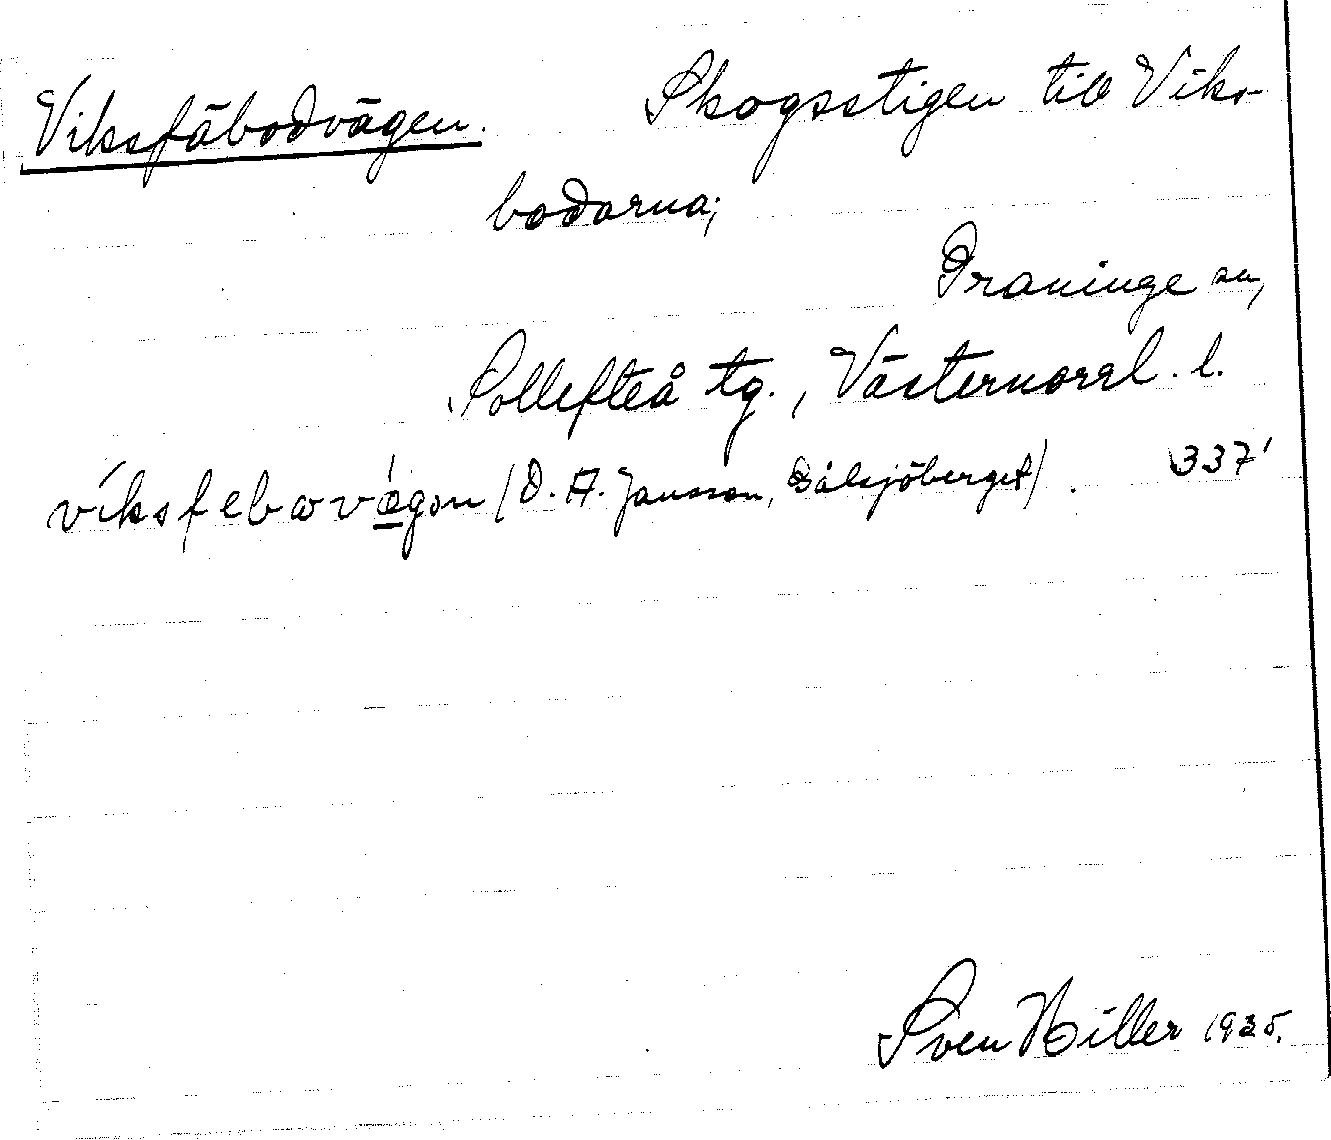 Viksfäbodvägen. Skogsstigen till Viks-
bodarna;
Graninge sn,
Sollefteå tg., Västernorrl. l.
víksfebωvǽgən (O. A. Jansson, Bålsjöberget). 337'
Sven Hiller 1935.